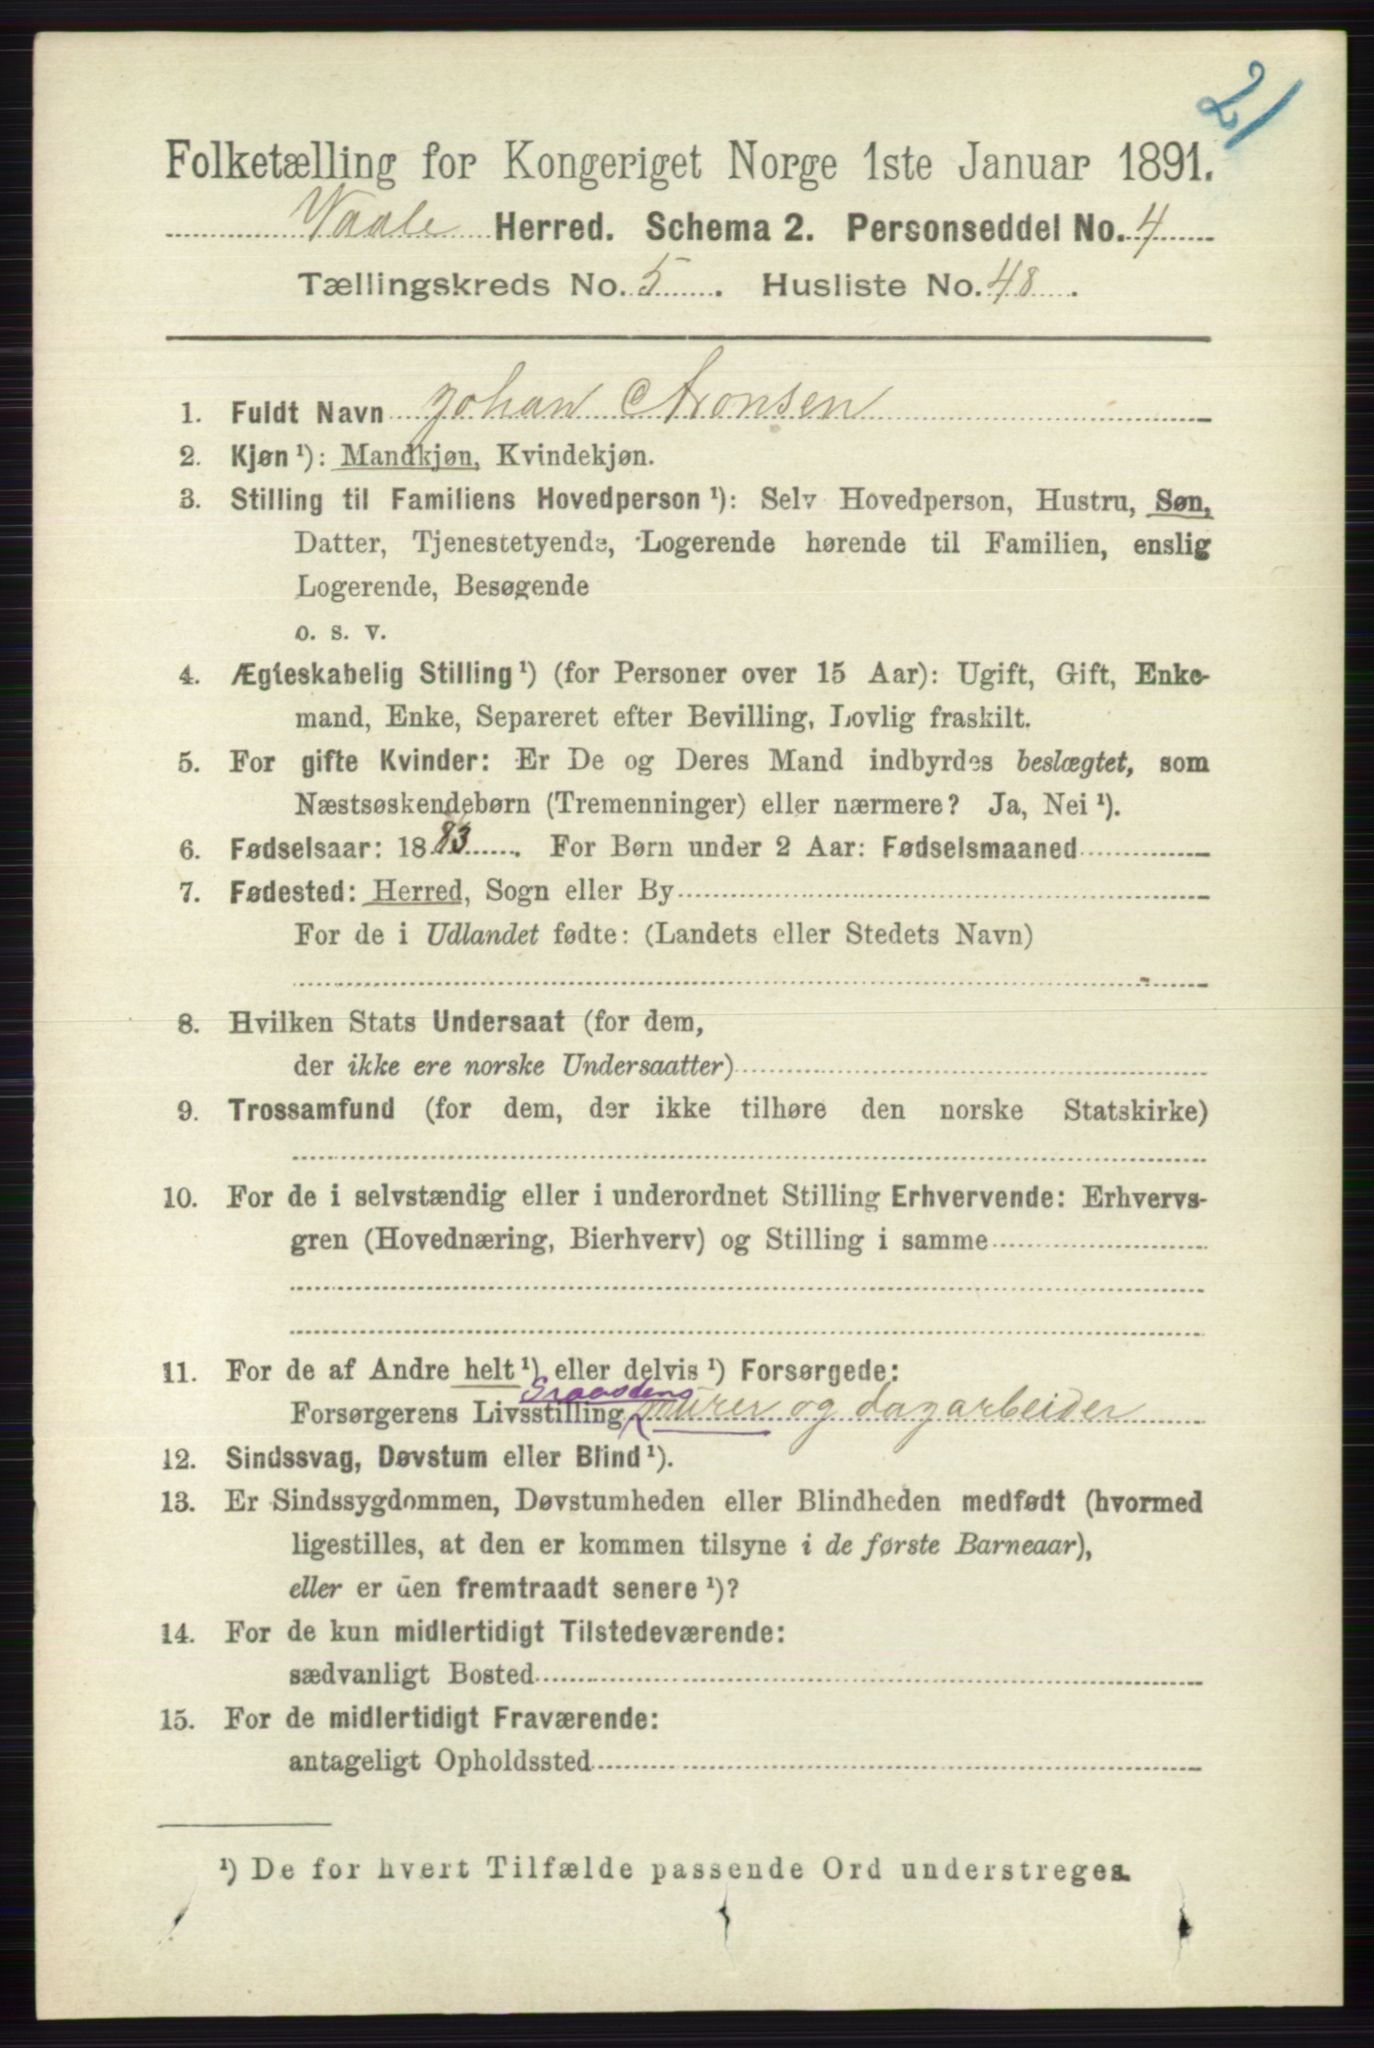 21
Folketælling for Kongeriget Norge 1ste Januar 1891.
Vaale Herred. Schema 2. Personseddel No. 4
Tællingskreds No. 5. Husliste No. 48.
1. Fuldt Navn Johan Aronsen
2. Kjøn ¹): Mandkjøn, Kvindekjøn.
3. Stilling til Familiens Hovedperson ¹): Selv Hovedperson, Hustru, Søn,
Datter, Tjenestetyende, Logerende hørende til Familien, enslig
Logerende, Besøgende
o. s. v.
4. Ægteskabelig Stilling ¹) (for Personer over 15 Aar): Ugift, Gift, Enke-
mand, Enke, Separeret efter Bevilling, Lovlig fraskilt.
5. For gifte Kvinder: Er De og Deres Mand indbyrdes beslægtet, som
Næstsøskendebørn (Tremenninger) eller nærmere? Ja, Nei ¹).
6. Fødselsaar: 1883. For Børn under 2 Aar: Fødselsmaaned
7. Fødested: Herred, Sogn eller By
For de i Udlandet fødte: (Landets eller Stedets Navn)
8. Hvilken Stats Undersaat (for dem,
der ikke ere norske Undersaatter)
9. Trossamfund (for dem, der ikke tilhøre den norske Statskirke)
10. For de i selvstændig eller i underordnet Stilling Erhvervende: Erhvervs-
gren (Hovednæring, Bierhverv) og Stilling i samme
11. For de af Andre helt ¹) eller delvis ¹) Forsørgede:
Forsørgerens Livsstilling murer og dagarbeider
12. Sindssvag, Døvstum eller Blind ¹).
13. Er Sindssygdommen, Døvstumheden eller Blindheden medfødt (hvormed
ligestilles, at den er kommen tilsyne i de første Barneaar),
eller er den fremtraadt senere ¹)?
14. For de kun midlertidigt Tilstedeværende:
sædvanligt Bosted
15. For de midlertidigt Fraværende:
antageligt Opholdssted
¹) De for hvert Tilfælde passende Ord understreges.